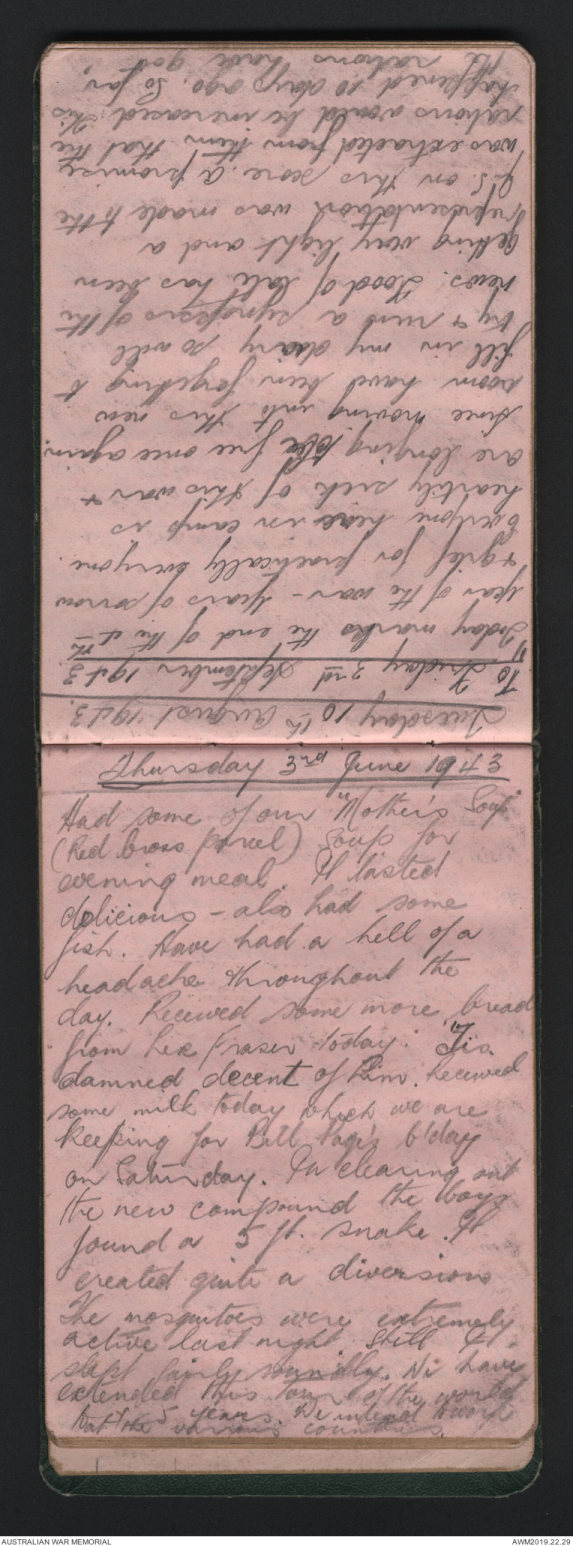 Tuesday 10th August 1943.
To Friday 3rd September 1943
Today marks the end of the 4th
year of the war - years of sorrow
& grief for practically everyone.
Everyone here in camp is
heartily sick of this war &
are longing to be free once again.
Since moving into this new
room have been forgetting to
fill in my diary so will
try & run a synopsis of the
news. Food of late has been
getting very light and a
representation was made to the
on this score. a promise
was extracted from them that the
rations would be increased. This
happened 10 days ago. So far,
rations have got
Thursday 3rd June 1943
Had some of our "Mother's Soup"
(Red Cross parcel) Soup for
evening meal. It tasted
delicious - also had some
fish. Have had a hell of a
headache throughout the
day. Received some more bread
from Lex Fraser today. Tis
damned decent of him. Received
some milk today which we are
keeping for Bill Page's b'day
on Saturday. In clearing out
the new compound the boys
found a 5 ft. snake. It
created quite a diversion
The mosquitoes were extremely
active last night. Still I
slept fairly soundly. We have
extended this tour of the world
to 5 years. We intend to work
at the various countries.
AUSTRALIAN WAR MEMORIAL
AWM2019.22.29